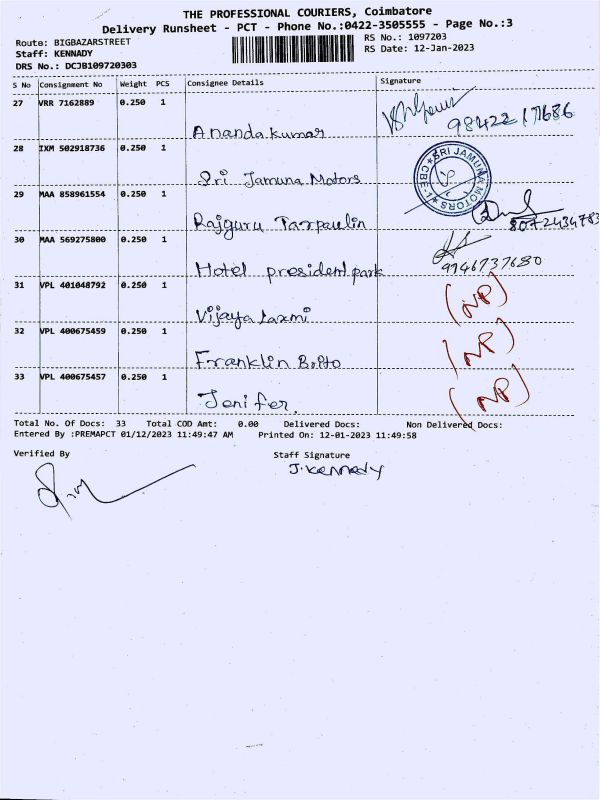 THE PROFESSIONAL COURIERS, Coimbatore
Delivery Runsheet - PCT - Phone No.:0422-3505555 - Page No.:3
Route: BIGBAZARSTREET
Staff: KENNADY
DRS No.: DCJB109720303
RS No.: 1097203
RS Date: 12-Jan-2023
S No Consignment No Weight PCS Consignee Details Signature
27 VRR 7162889 0.250 1
Ananda kumar 98422 17686
28 IXM 502918736 0.250 1
Sri Jamuna Motors SRI JAMUNA MOTORS CBE-1
29 MAA 858961554 0.250 1
Rajguru Tarpaulin 8072434783
30 MAA 569275800 0.250 1
Hotel president park 9946737680
31 VPL 401048792 0.250 1
Vijaya Laxmi (NP)
32 VPL 400675459 0.250 1
Franklin Brito (NP)
33 VPL 400675457 0.250 1
Jenifer. (NP)
Total No. Of Docs: 33 Total COD Amt: 0.00 Delivered Docs: Non Delivered Docs:
Entered By :PREMAPCT 01/12/2023 11:49:47 AM Printed On: 12-01-2023 11:49:58
Verified By Staff Signature
J. Kennady